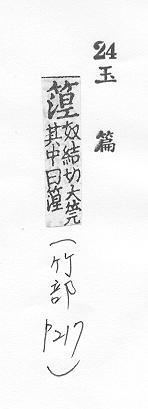 24 玉篇
篞
奴結切大筦
其中曰篞
(竹部 p217)